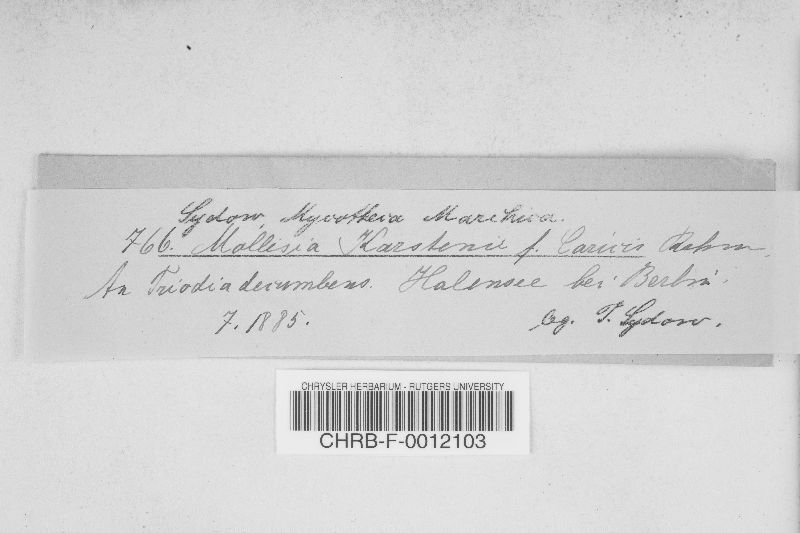 Sydow, Mycotheca Marchica.
766. Mollisia Karstenii f. Caricis Rehm.
An Triodia decumbens. Halensee bei Berlin.
7. 1885. leg. P. Sydow.
CHRYSLER HERBARIUM - RUTGERS UNIVERSITY
CHRB-F-0012103